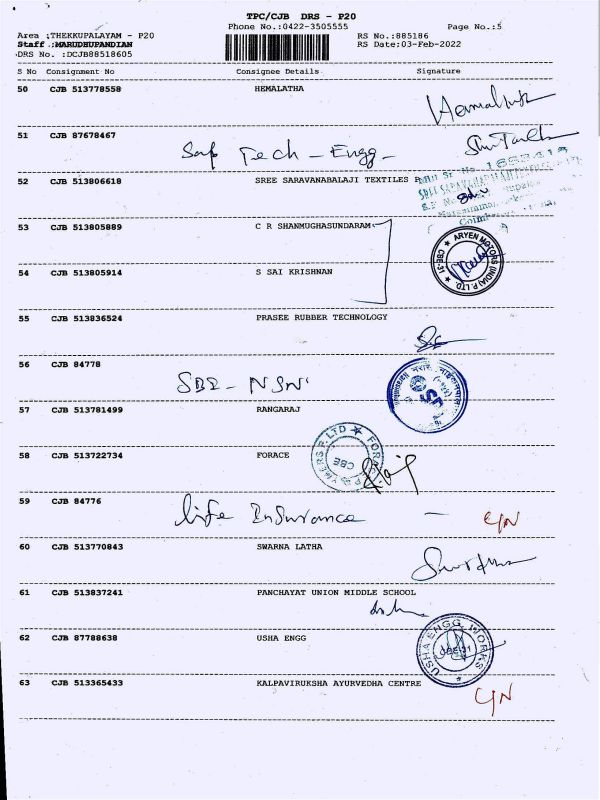 TPC/CJB DRS - P20
Phone No.:0422-3505555 Page No.:5
Area :THEKKUPALAYAM - P20 RS No.:885186
Staff :MARUDHUPANDIAN RS Date:03-Feb-2022
DRS No. :DCJB88518605
S No Consignment No Consignee Details Signature
50 CJB 513778558 HEMALATHA
Hemalatha
51 CJB 87678467
Tech - Engg -
52 CJB 513806618 SREE SARAVANABALAJI TEXTILES P
53 CJB 513805889 C R SHANMUGHASUNDARAM
ARYEN MOTORS (INDIA) P. LTD. CBE-31
54 CJB 513805914 S SAI KRISHNAN
55 CJB 513836524 PRASEE RUBBER TECHNOLOGY
56 CJB 84778
SBI - NSN
57 CJB 513781499 RANGARAJ
58 CJB 513722734 FORACE
FORACE P. LTD CBE
59 CJB 84776
life Insurance -
60 CJB 513770843 SWARNA LATHA
61 CJB 513837241 PANCHAYAT UNION MIDDLE SCHOOL
62 CJB 87788638 USHA ENGG
USHA ENGG. WORKS CBE-31
63 CJB 513365433 KALPAVIRUKSHA AYURVEDHA CENTRE